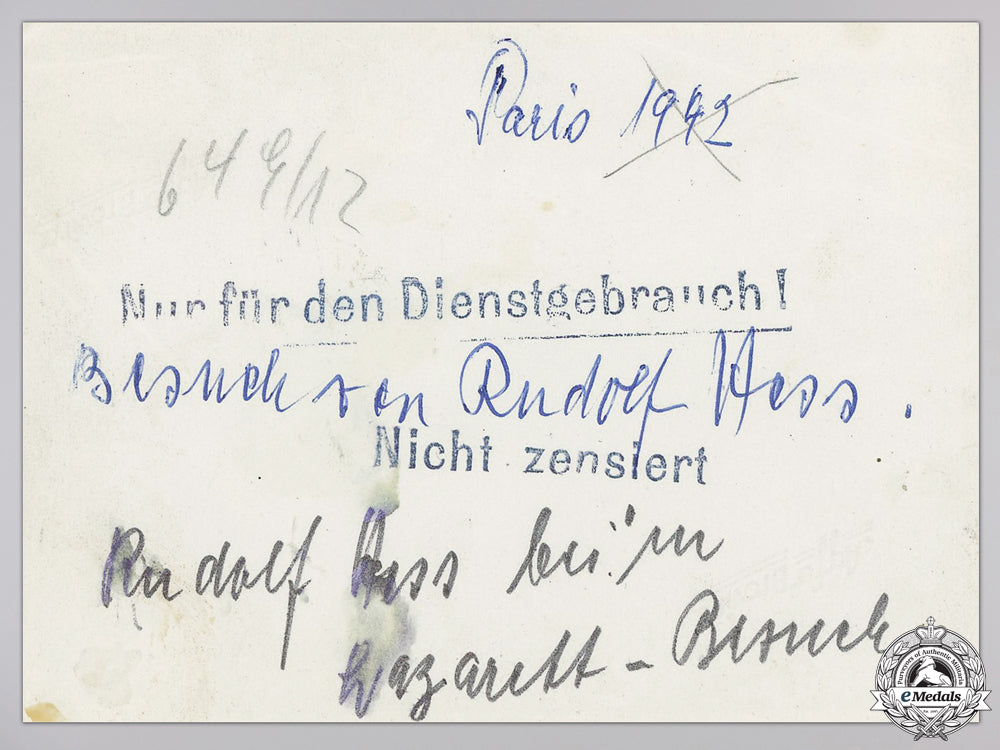 Paris 1942
649/12
Nur für den Dienstgebrauch!
Besuch von Rudolf Hess.
Nicht zensiert
Rudolf Hess bei'm
Lazarett - Besuch
Purveyors of Authentic Militaria
eMedals